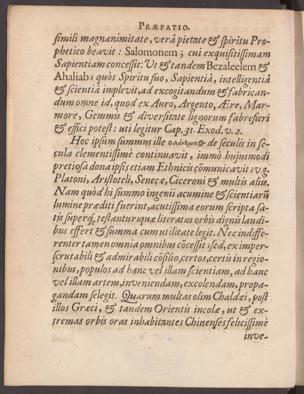 PRÆFATIO.
simili magnanimitate, verâ pietate & spiritu Pro-
phetico beavit: Salomonem; cui exquisitissimam
Sapientiam concessit: Ut & tandem Bezaleelem &
Ahaliab: quos Spiritu suo, Sapientiâ, intelligentiâ
& scientiâ implevit, ad excogitandum & fabrican-
dum omne id, quod ex Auro, Argento, Ære, Mar-
more, Gemmis & diversitate lignorum fabrefieri
& effici potest: uti legitur Cap. 31. Exod. v. 2.
Hoc ipsum summus ille de seculis in se-
cula clementissimè continuavit, immò hujusmodi
pretiosa dona ipsis etiam Ethnicis cõmunicavit v. g.
Platoni, Aristoteli, Senecæ, Ciceroni & multis aliis.
Nam quòd hi summo ingenii acumine & scientiarũ
lumine præditi fuerint, acutissima eorum scripta sa-
tis superq́; testantur, quæ literatus orbis dignis laudi-
bus effert & summa cum utilitate legit. Nec indiffe-
renter tamen omnia omnibus cõcessit: sed, ex imper-
scrutabili & admirabili cõsilio, certos, certis in regio-
nibus, populos ad hanc vel illam scientiam, ad hanc
vel illam artem, inveniendam, excolendam, propa-
gandam selegit. Quarum multas olim Chaldæi, post
illos Græci, & tandem Orientis incolæ, ut & ex-
tremas orbis oras inhabitantes Chinenses felicissimè
inve-